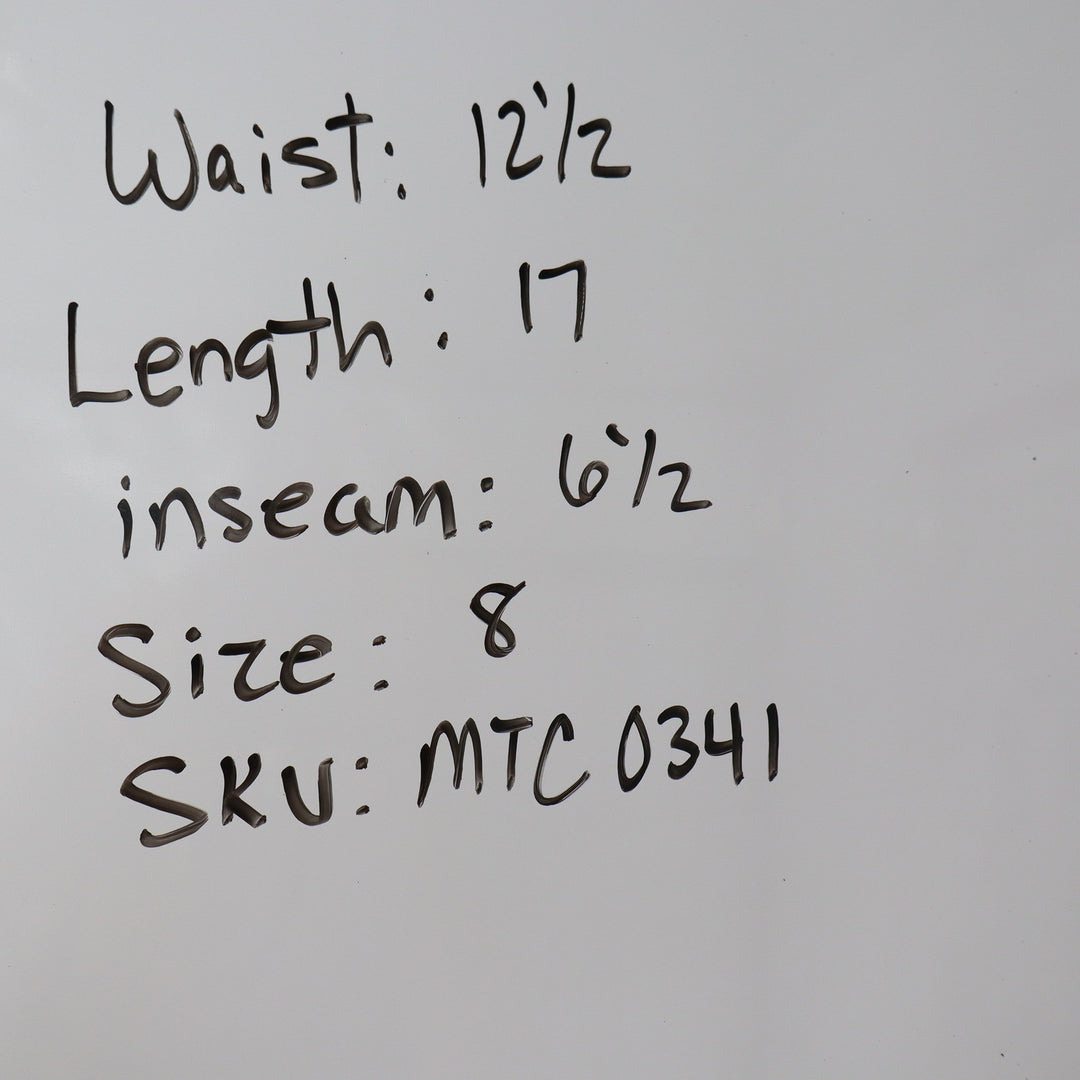 Waist: 12 1/2
Length: 17
inseam: 6 1/2
Size: 8
SKU: MTC 0341